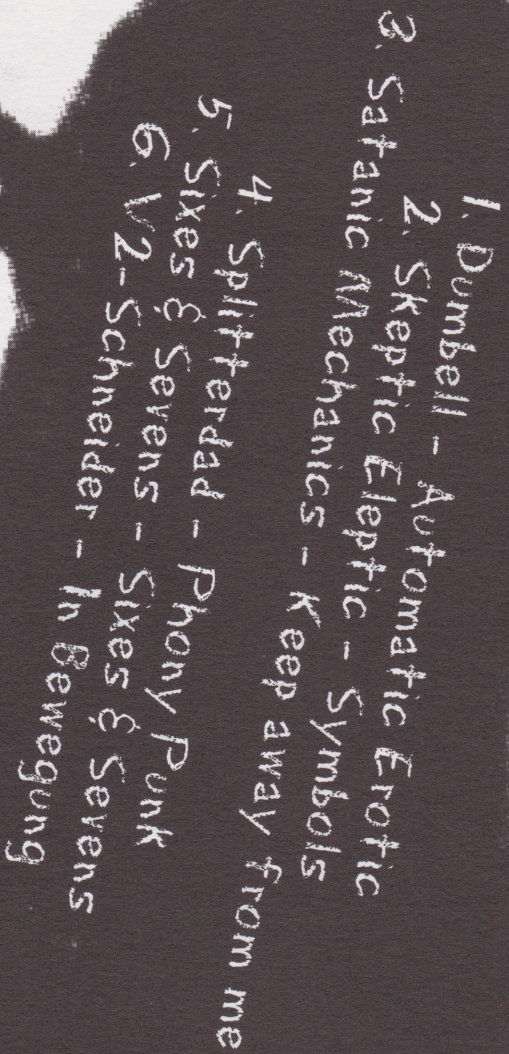 1. Dumbell - Automatic Erotic
2. Skeptic Eleptic - Symbols
3. Satanic Mechanics - Keep away from me
4. Splitterdad - Phony Punk
5. Sixes & Sevens - Sixes & Sevens
6. V2-Schneider - In Bewegung